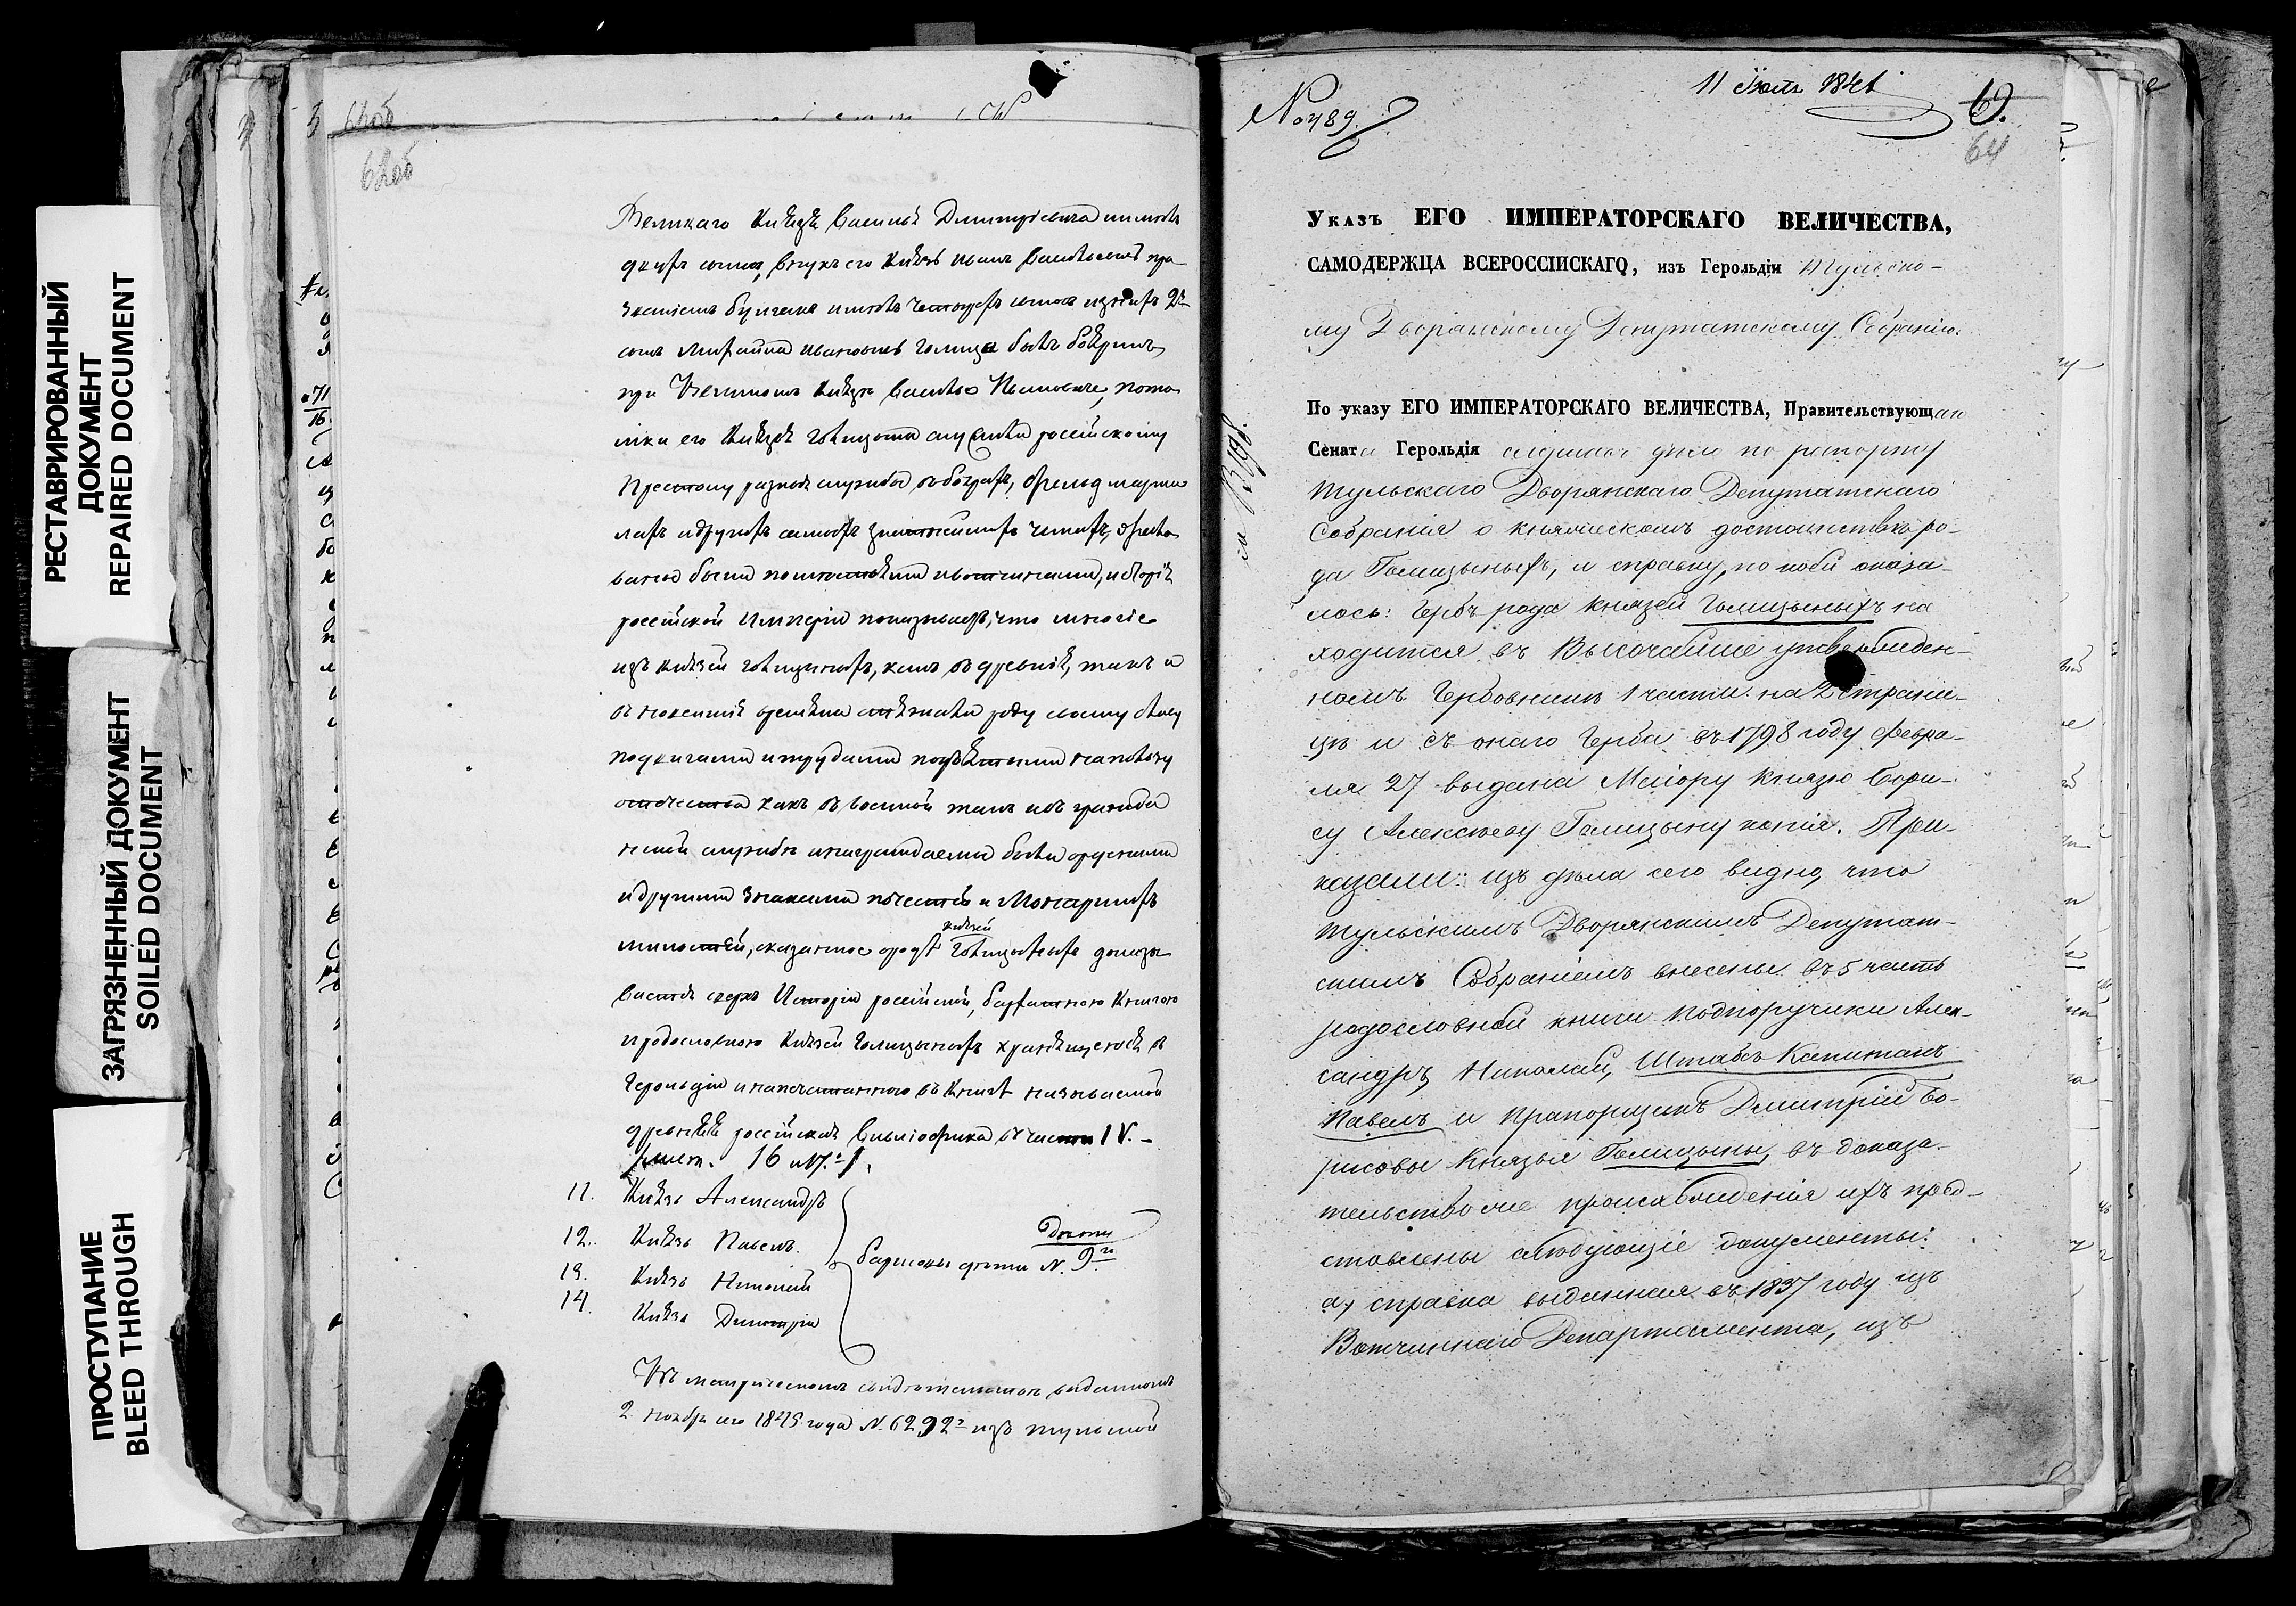 РЕСТАВРИРОВАННЫЙ
ДОКУМЕНТ
REPAIRED DOCUMENT
ЗАГРЯЗНЕННЫЙ ДОКУМЕНТ
SOILED DOCUMENT
ПРОСТУПАНИЕ
BLEED THROUGH
Великаго Князя Василья Димитріевича имѣлъ
двухъ сыновъ, внукъ его Князь Иванъ Васильевичь про
званіемъ Булгакъ имѣлъ четырехъ сыновъ изъ нихъ 2й
сынъ Михайла Ивановичь Голица былъ Бояринъ
при Великомъ Князѣ Василье Ивановиче, потом
ки его Князья Голицыны служили россійскому
Престолу разныя службы въ боярахъ, фельдмарша
лахъ и другихъ самыхъ знатнѣйшихъ чинахъ, жало
ваны были помѣстьями и вотчинами, исторія
россійской Имперіи показываетъ, что многіе
изъ Князей Голицыныхъ, какъ въ древнія, такъ и
въ новейшія времяна снискали роду своему славу
подвигами и трудами подъятыми на пользу
отечества какъ въ военной такъ и въ гражда
нской службѣ и награждаемы были орденами
и другими знаками почестей и Монаршихъ
милостей, сказанное о родѣ князей Голицыныхъ доказы
вается сверхъ Исторіи россійской, бархатною Книгою
и родословною Князей Голицыныхъ хранящеюся в
Герольдіи и напечатанною въ Книгѣ называемой
древняя россійская Вивліофика въ части IV.
16 и 17.
11. Князь Александръ
12. Князь Павелъ.
13. Князь Николай
14. Князь Дмитрій
Борисовы дѣти N. 9й
Въ метрическомъ свидѣтельствѣ выданномъ
2 ноября 1825 года N. 6292 изъ тульской
No 489.
11 Іюля 1841
64
Указъ ЕГО ИМПЕРАТОРСКАГО ВЕЛИЧЕСТВА,
САМОДЕРЖЦА ВСЕРОССІЙСКАГО, изъ Герольдіи Тульско-
му Дворянскому Депутатскому Собранію.
По указу ЕГО ИМПЕРАТОРСКАГО ВЕЛИЧЕСТВА, Правительствующаго
Сената Герольдія слушали дѣло по рапорту
Тульскаго Дворянскаго Депутатскаго
Собранія о княжескомъ достоинствѣ ро-
да Голицыныхъ, и справку, по коей оказа-
лось: Гербъ рода Князей Голицыныхъ на
ходится въ Высочайше утвержден-
номъ Гербовнике 1 части на 2 страни-
цѣ и съ онаго Герба въ 1798 году Февра-
ля 27 выдана Маіору Князю Бори-
су Алексѣеву Голицыну копія. При-
казали: изъ дѣла сего видно, что
Тульскимъ Дворянскимъ Депутат-
скимъ Собраніемъ внесены въ 5 часть
родословной книги подпоручики Алек-
сандръ, Николай, Штабсъ Капитанъ
Павелъ и прапорщикъ Дмитрій Бо-
рисовы Князья Голицыны, въ доказа-
тельство же происхожденія ихъ пред-
ставлены слѣдующіе документы:
а) справка выданная въ 1837 году изъ
Вотчиннаго Департамента, изъ